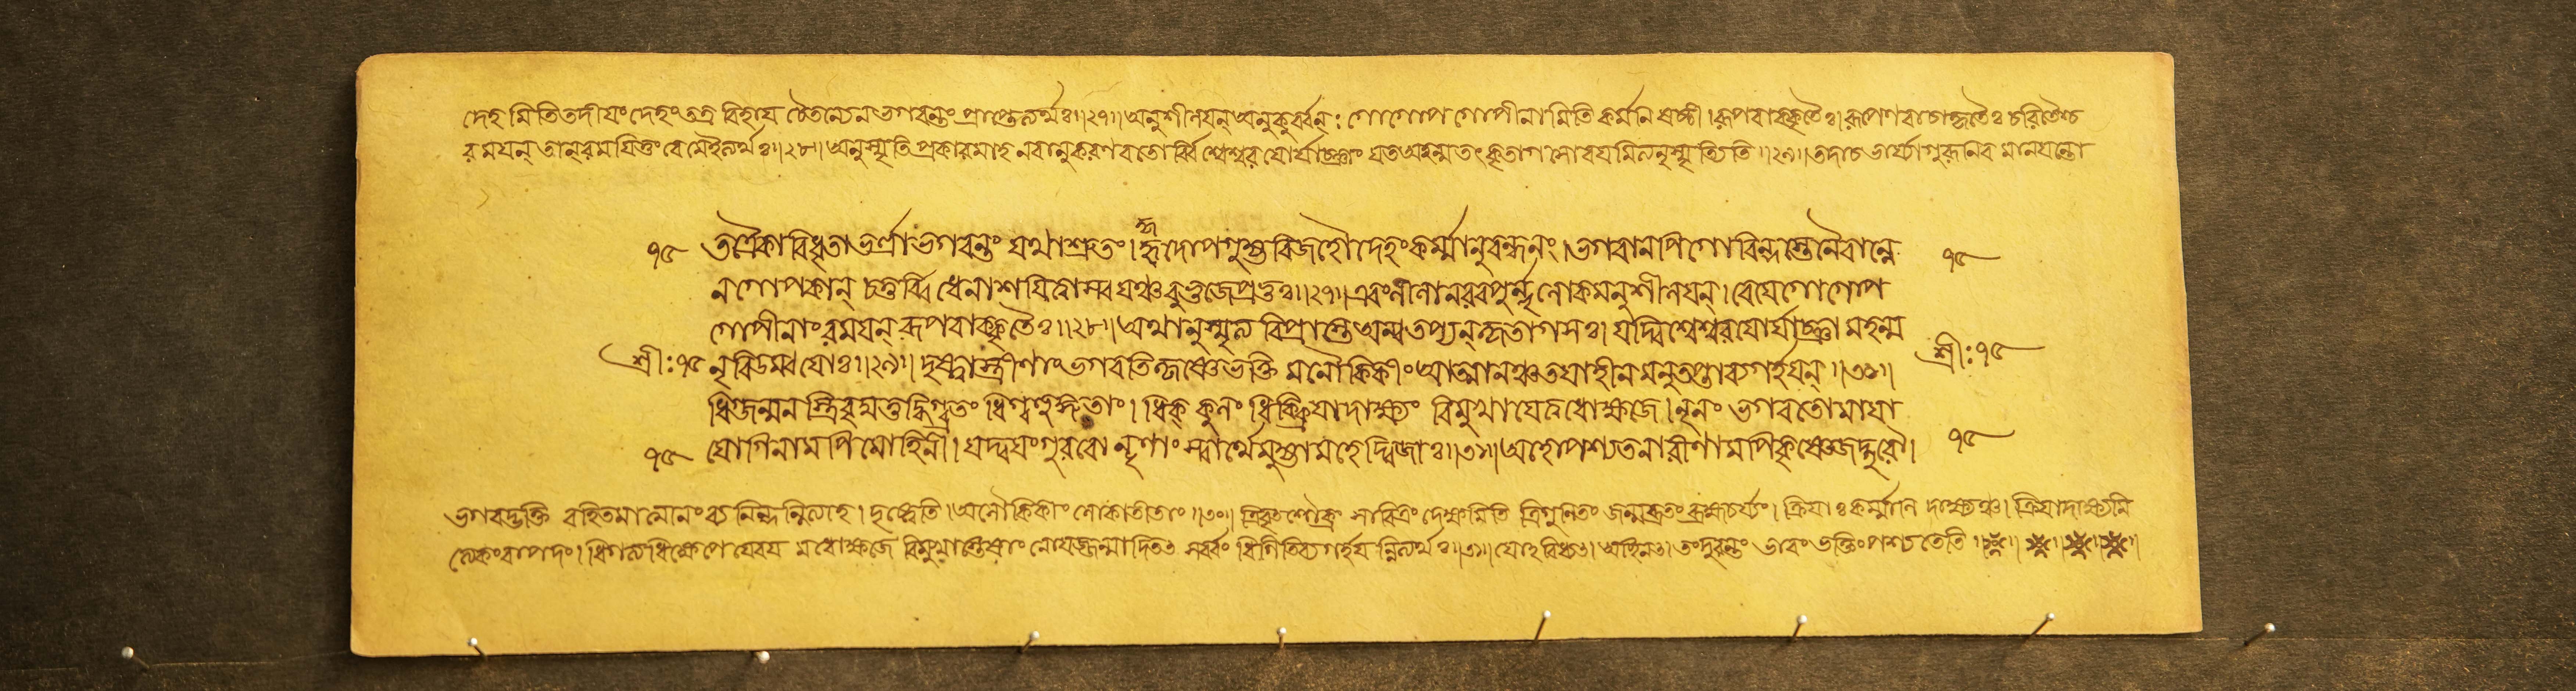 দেহমিতিতদীয়ং দেহং তত্র বিহায় চৈতন্যেন ভগবন্তং প্রাপ্তেত্যর্থঃ॥২৭॥ অনুশীলয়ন্ অনুকুর্ব্বন্: গোগোপগোপীনামিতি কর্মনি ষষ্ঠী। রূপবাক্কৃতৈঃ। রূপেণ বাচা কৃতৈঃ চরিতৈশ্চ
রময়ন্ তান্ রময়িতুং রেমেইত্যর্থঃ॥২৮॥ অনুস্মৃতিপ্রকারমাহ নরানুকরণবতোর্বিশ্বেশ্বরয়োর্যাচ্ঞাং যত অহন্ম তৎ কৃতাগসোবয়মিত্যনুস্মৃত্যেতি॥২৯॥ তদাচ ভার্য্যাগুরূনিব মানয়ন্তো
৭৫ তত্রৈকাবিধৃতা ভর্ত্রা ভগবন্তং যথাশ্রুতং। হৃদোপগুহ্য বিজহৌ দেহং কর্ম্মানুবন্ধনং। ভগবানপি গোবিন্দস্তেনৈবান্নে ৭৫
নগোপকান্ চতুর্ব্বিধেনাশয়িত্বা স্বয়ঞ্চ বুভুজে প্রভুঃ॥২৭॥ এবং লীলানরবপুর্নৃলোকমনুশীলয়ন্। রেমেগোগোপ
গোপীনাং রময়ন্ রূপবাক্কৃতৈঃ॥২৮॥ অথানুস্মৃত্য বিপ্রাস্তে অন্বতপ্যন্ কৃতাগসঃ। যদ্বিশ্বেশ্বরয়োর্যাচ্ঞা মহন্ম
শ্রী: ৭৫ নৃবিডম্বয়োঃ॥২৯॥ দৃষ্ট্বাস্ত্রীণাং ভগবতি কৃষ্ণেভক্তি মলৌকিকীং আত্মানঞ্চ তয়াহীন মনুতপ্তা ব্যগর্হয়ন্॥৩০॥ শ্রী: ৭৫
ধিগ্জন্মনস্ত্রিবৃদ্যত্তদ্ধিগ্ব্রতং ধিগ্বহুজ্ঞতাং। ধিক্ কুলং ধিক্ক্রিয়াদাক্ষ্যং বিমুখা যেত্বধোক্ষজে। নূনং ভগবতোমায়া
৭৫ যোগিনামপি মোহিনী। যদ্বয়ং গুরবো নৃণাং স্বার্থেমুহ্যামহে দ্বিজাঃ॥৩১॥ অহোপশ্যত নারীণামপি কৃষ্ণেজগদ্গুরৌ। ৭৫
ভগবদ্ভক্তি রহিতমাত্মানং ব্যনিন্দন্নিত্যাহ। দৃষ্ট্বেতি। অলৌকিকীং লোকাতীতাং॥৩০॥ ত্রিবৃৎ শৌক্রং সাবিত্রং দৈক্ষমিতি ত্রিগুনিতং জন্ম ব্রতং ব্রহ্মচর্য্যং। ক্রিয়াঃ কর্ম্মানি দাক্ষ্যঞ্চ। ক্রিয়াদাক্ষ্যমি
ত্যেকংবাপদং। ধিগিত্যধিক্ষেপে যেবয়মধোক্ষজে বিমুখাস্তেষাং নোযজ্জন্মাদি তৎ সর্ব্বং ধিগিতি ব্যগর্হয়ন্নিত্যর্থঃ॥৩১॥ তংদুরন্তং ভাবং ভক্তিং পশ্যতেতি॥